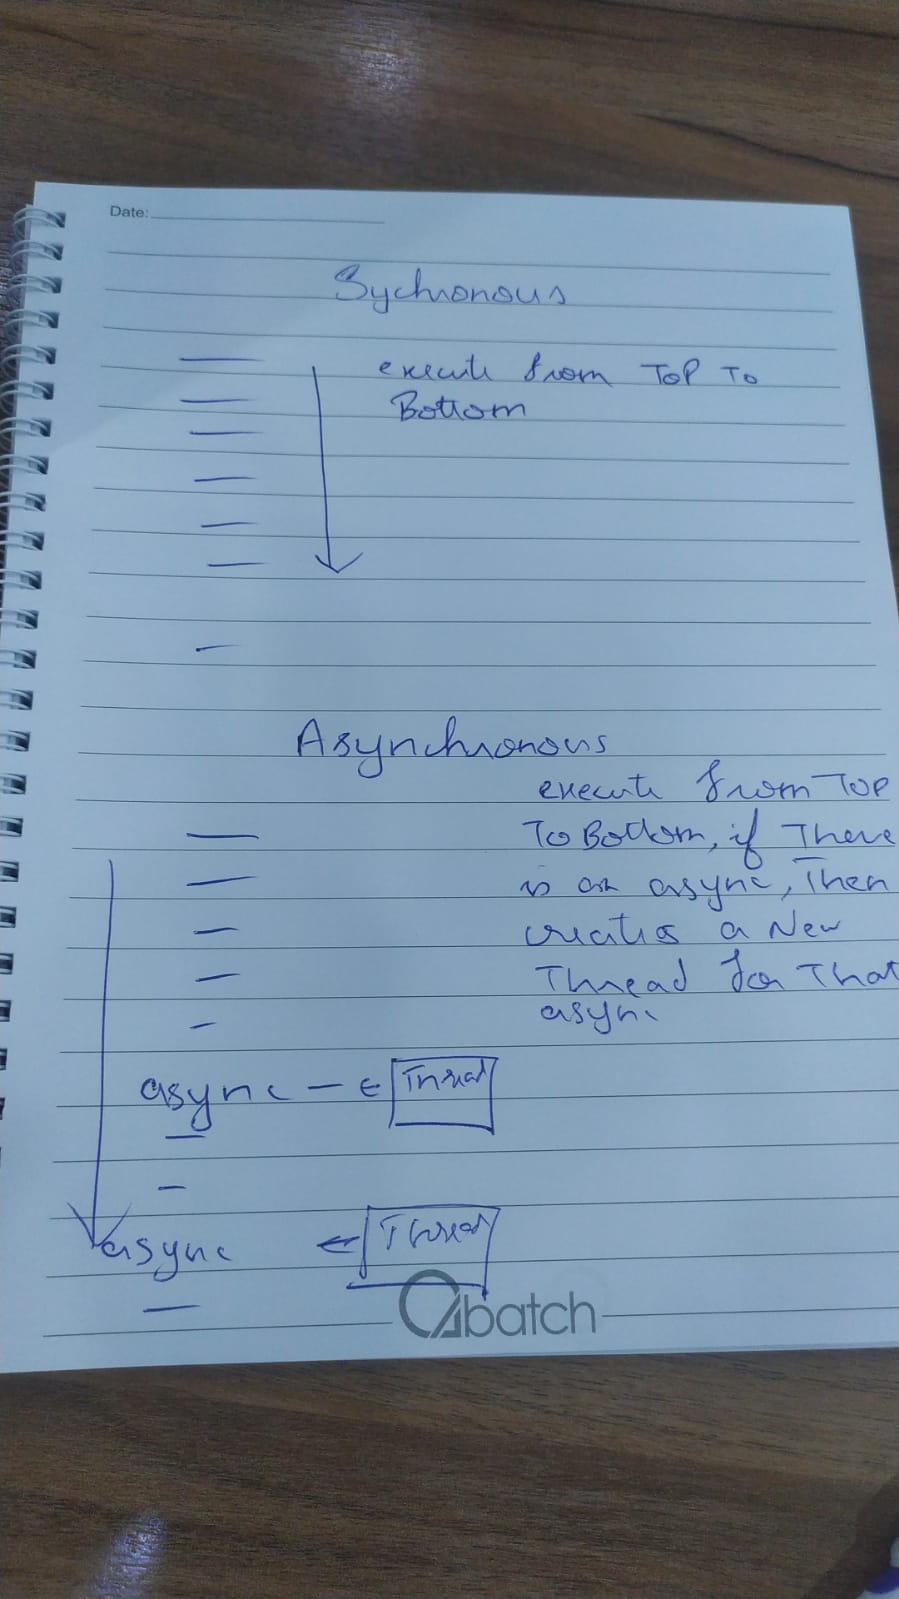 Date:
Sychronous
execute from TOP TO
Bottom
Asynchronous
execute from TOP
TO Bottom, if There
is an async, Then
creates a New
Thread for That
async
async Thread
async Thread
Qbatch